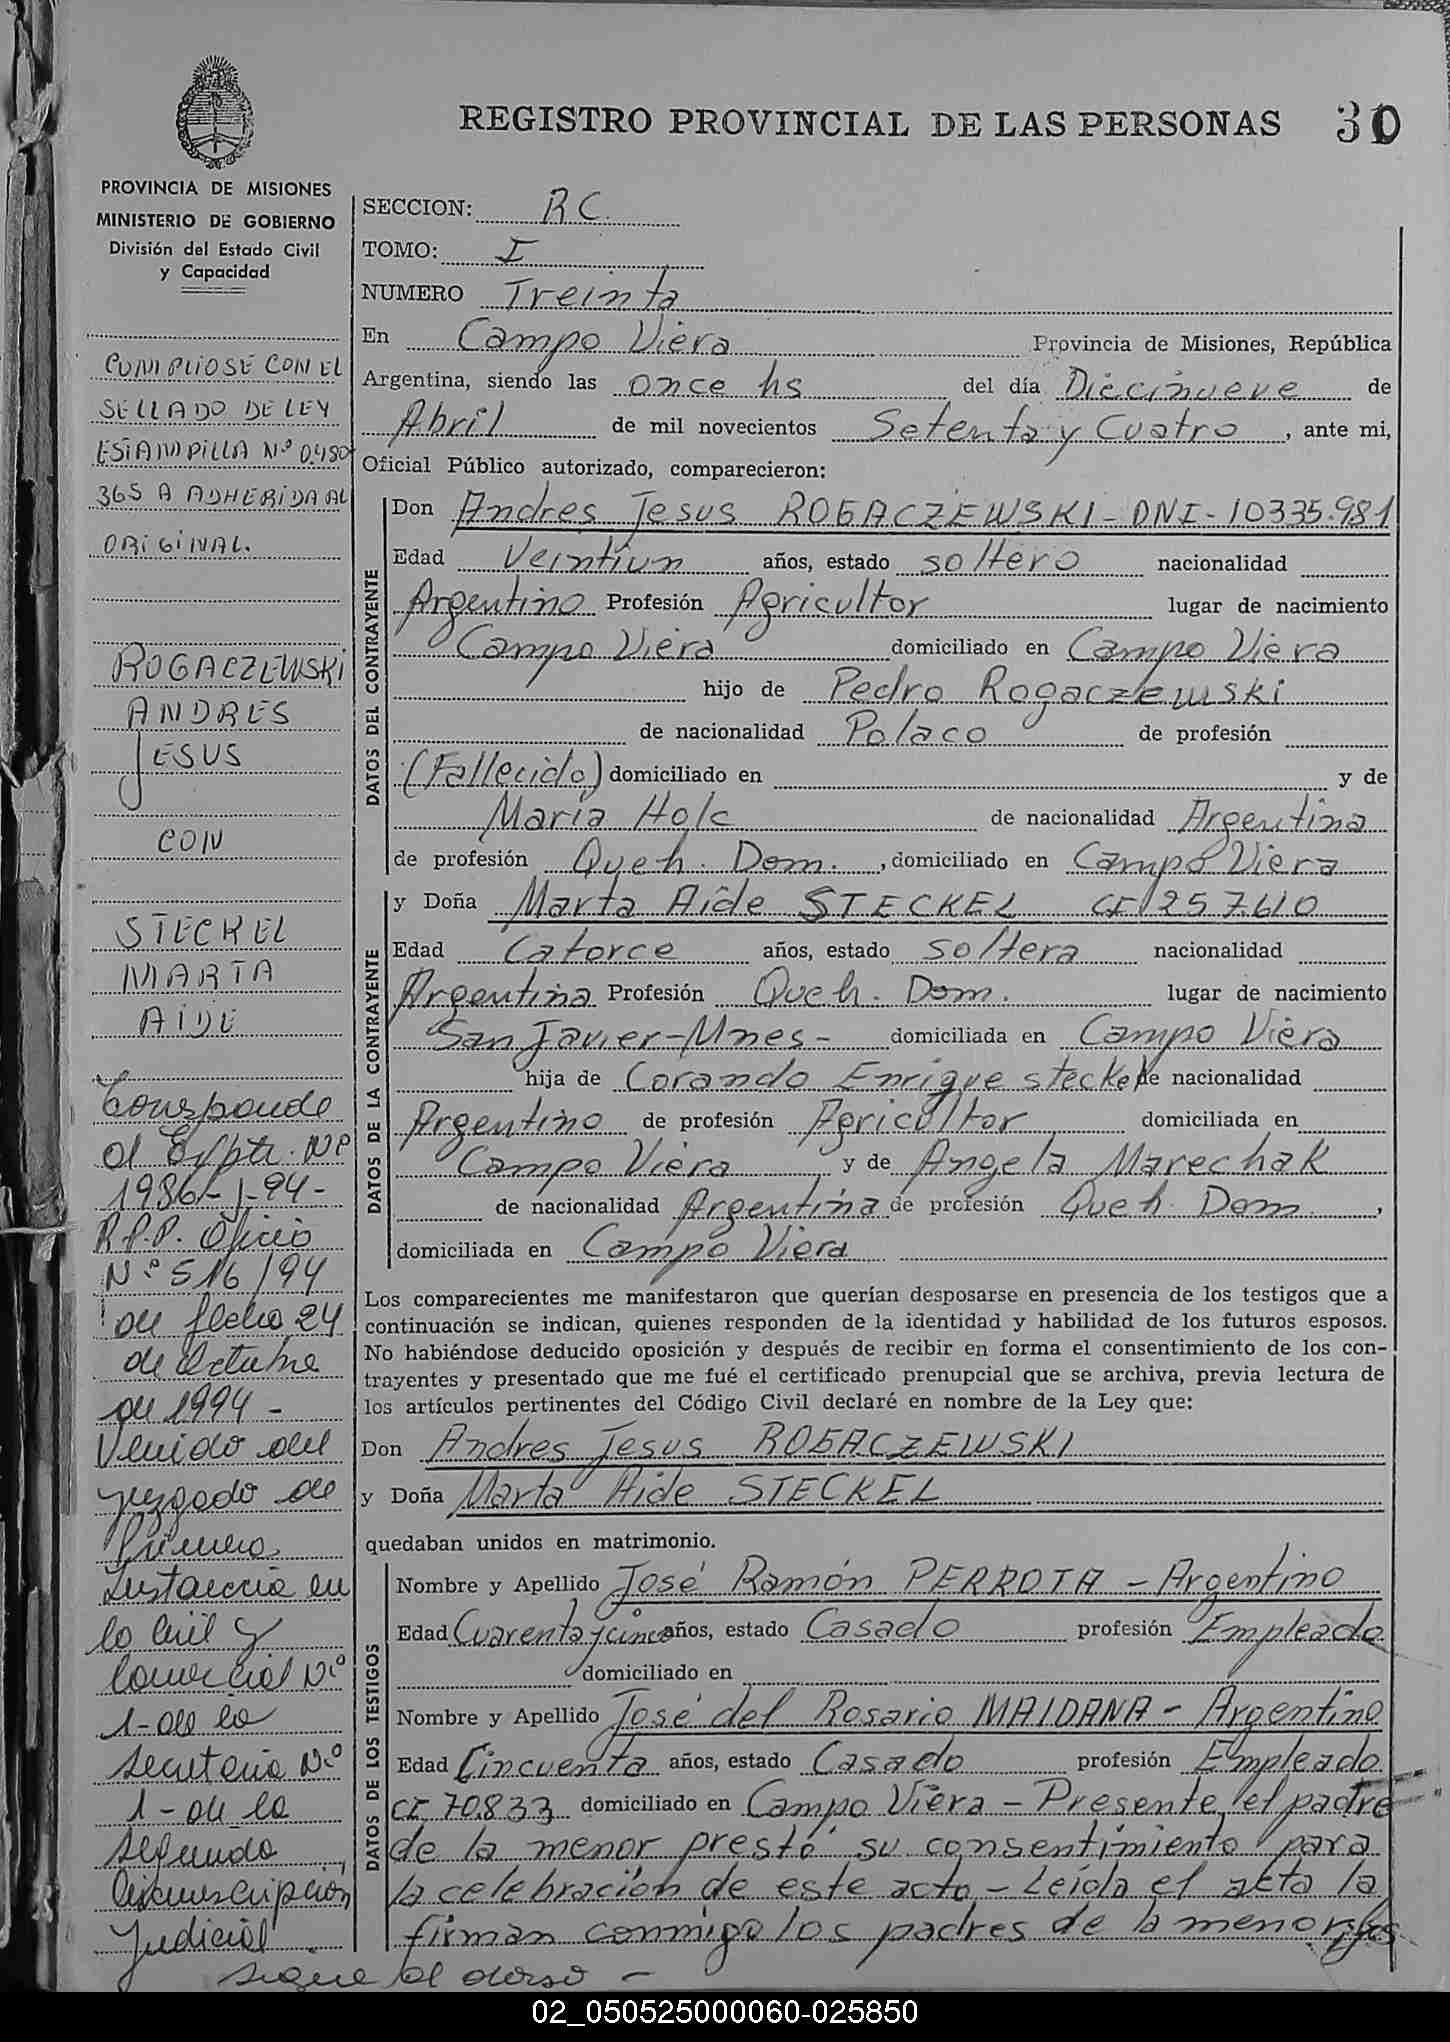 REGISTRO PROVINCIAL DE LAS PERSONAS 30
PROVINCIA DE MISIONES
MINISTERIO DE GOBIERNO
División del Estado Civil
y Capacidad
CUMPLIOSE CON EL
SELLADO DE LEY
ESTAMPILLA Nº 0.480
365 A ADHERIDA AL
ORIGINAL.
ROGACZEWSKI
ANDRES
JESUS
CON
STECKEL
MARTA
AIDE
Corresponde
al Expte. Nº
1986-J-94-
R.P.P. Oficio
Nº 516/94
de fecha 24
de Octubre
de 1994 -
Venido del
Juzgado de
Primera
Instancia en
lo Civil y
Comercial Nº
1- de la
Secretaria Nº
1 - de la
Segunda
Circunscripción
Judicial.
sigue al dorso -
SECCION: RC.
TOMO: I
NUMERO Treinta
En Campo Viera Provincia de Misiones, República
Argentina, siendo las once hs del día Diecinueve de
Abril de mil novecientos Setenta y Cuatro, ante mi,
Oficial Público autorizado, comparecieron:
DATOS DEL CONTRAYENTE
Don Andres Jesus ROGACZEWSKI - DNI - 10335.981
Edad Veintiun años, estado soltero nacionalidad
Argentino Profesión Agricultor lugar de nacimiento
Campo Viera domiciliado en Campo Viera
hijo de Pedro Rogaczewski
de nacionalidad Polaco de profesión
(Fallecido) domiciliado en y de
María Holc de nacionalidad Argentina
de profesión Queh. Dom., domiciliado en Campo Viera
DATOS DE LA CONTRAYENTE
y Doña Marta Aide STECKEL CI 257.610
Edad Catorce años, estado soltera nacionalidad
Argentina Profesión Queh. Dom. lugar de nacimiento
San Javier-Mnes- domiciliada en Campo Viera
hija de Corando Enrique steckel de nacionalidad
Argentino de profesión Agricultor domiciliada en
Campo Viera y de Angela Marechak
de nacionalidad Argentina de profesión Queh. Dom.,
domiciliada en Campo Viera
Los comparecientes me manifestaron que querían desposarse en presencia de los testigos que a
continuación se indican, quienes responden de la identidad y habilidad de los futuros esposos.
No habiéndose deducido oposición y después de recibir en forma el consentimiento de los con-
trayentes y presentado que me fué el certificado prenupcial que se archiva, previa lectura de
los artículos pertinentes del Código Civil declaré en nombre de la Ley que:
Don Andres Jesus ROGACZEWSKI
y Doña Marta Aide STECKEL
quedaban unidos en matrimonio.
DATOS DE LOS TESTIGOS
Nombre y Apellido José Ramón PERROTA - Argentino
Edad Cuarenta y cinco años, estado Casado profesión Empleado
domiciliado en
Nombre y Apellido José del Rosario MAIDANA - Argentino
Edad Cincuenta años, estado Casado profesión Empleado
CI 70.833 domiciliado en Campo Viera - Presente, el padre
de la menor prestó su consentimiento para
la celebración de este acto - Leida el acta la
firman conmigo los padres de la menor
02_050525000060-025850